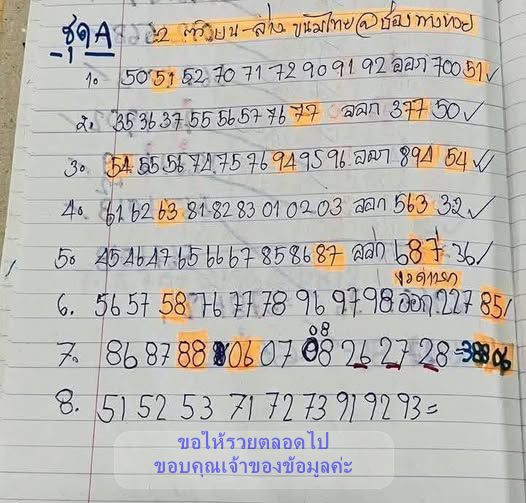 ชุด A ... 2 ตัวบน-ล่าง
1. 50 51 52 70 71 72 90 91 92 ออก 700 51 ✓
2. 35 36 37 55 56 57 76 77 ออก 377 50 ✓
3. 54 55 56 74 75 76 94 95 96 ออก 894 54 ✓
4. 61 62 63 81 82 83 01 02 03 ออก 563 32 ✓
5. 45 46 47 65 66 67 85 86 87 ออก 687 36 ✓
6. 56 57 58 76 77 78 96 97 98 ออก 227 85 /
08
7. 86 87 88 06 07 08 26 27 28 = 388 06
8. 51 52 53 71 72 73 91 92 93 =
ขอให้รวยตลอดไป
ขอบคุณเจ้าของข้อมูลค่ะ